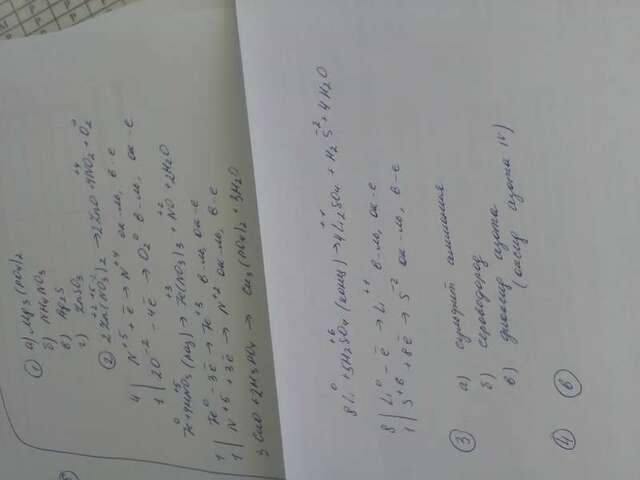 ① а) Mg3(PO4)2
б) NH4NO3
в) Ag2S
г) ZnSO3
② 2Zn(NO3)2 → 2ZnO + 4NO2 + O2
4 | N+5 + ē → N+4 ок-ль, в-е
1 | 2O-2 - 4ē → O2 0 в-ль, ок-е
Fe + 4HNO3 (раз) → Fe(NO3)3 + NO + 2H2O
1 | Fe0 - 3ē → Fe+3 в-ль, ок-е
1 | N+5 + 3ē → N+2 ок-ль, в-е
3CuO + 2H3PO4 → Cu3(PO4)2 + 3H2O
8Li + 5H2SO4 (конц) → 4Li2SO4 + H2S + 4H2O
8 | Li0 - ē → Li+1 в-ль, ок-е
1 | S+6 + 8ē → S-2 ок-ль, в-е
③ а) сульфит алюминия
б) сероводород
в) диоксид азота
(оксид азота IV)
④ в